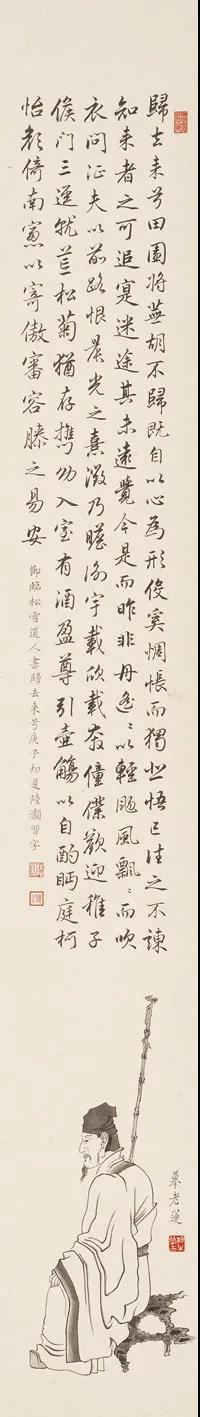 歸去来兮田園將蕪胡不歸既自以心為形役奚惆悵而獨悲悟已往之不諫
知来者之可追寔迷途其未遠覺今是而昨非舟遥〻以輕颺風飄〻而吹
衣問征夫以前路恨晨光之熹微乃瞻衡宇載欣載奔僮僕歡迎稚子
候门三逕就荒松菊猶存携幼入室有酒盈尊引壺觴以自酌眄庭柯
怡顔倚南窻以寄傲審容膝之易安
節臨松雪道人書歸去来兮庚子初夏陸灝習字
摹老蓮